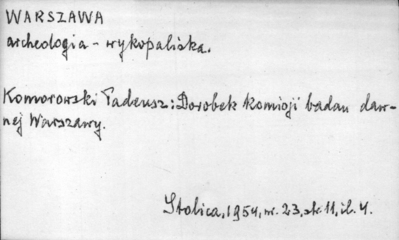 WARSZAWA
archeologia - wykopaliska.
Komorowski Tadeusz: Dorobek komisji badań daw-
nej Warszawy.
Stolica, 1954, nr. 23, str. 11, il. 4.